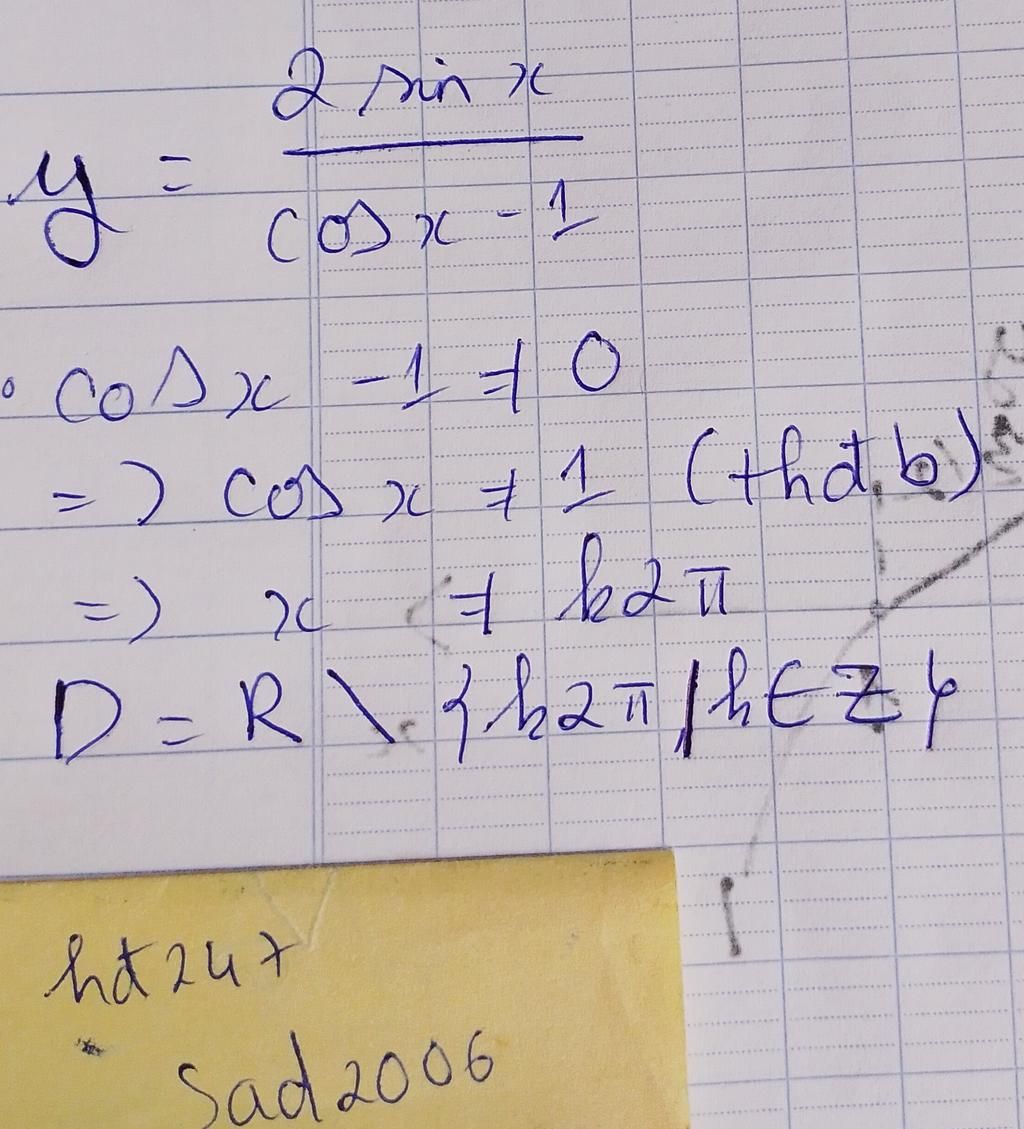 y = 2 sin x / cos x - 1
cos x - 1 ≠ 0
=> cos x ≠ 1 (thđb)
=> x ≠ k2π
D = R \ {k2π / k ∈ Z}
hđ247
Sad2006